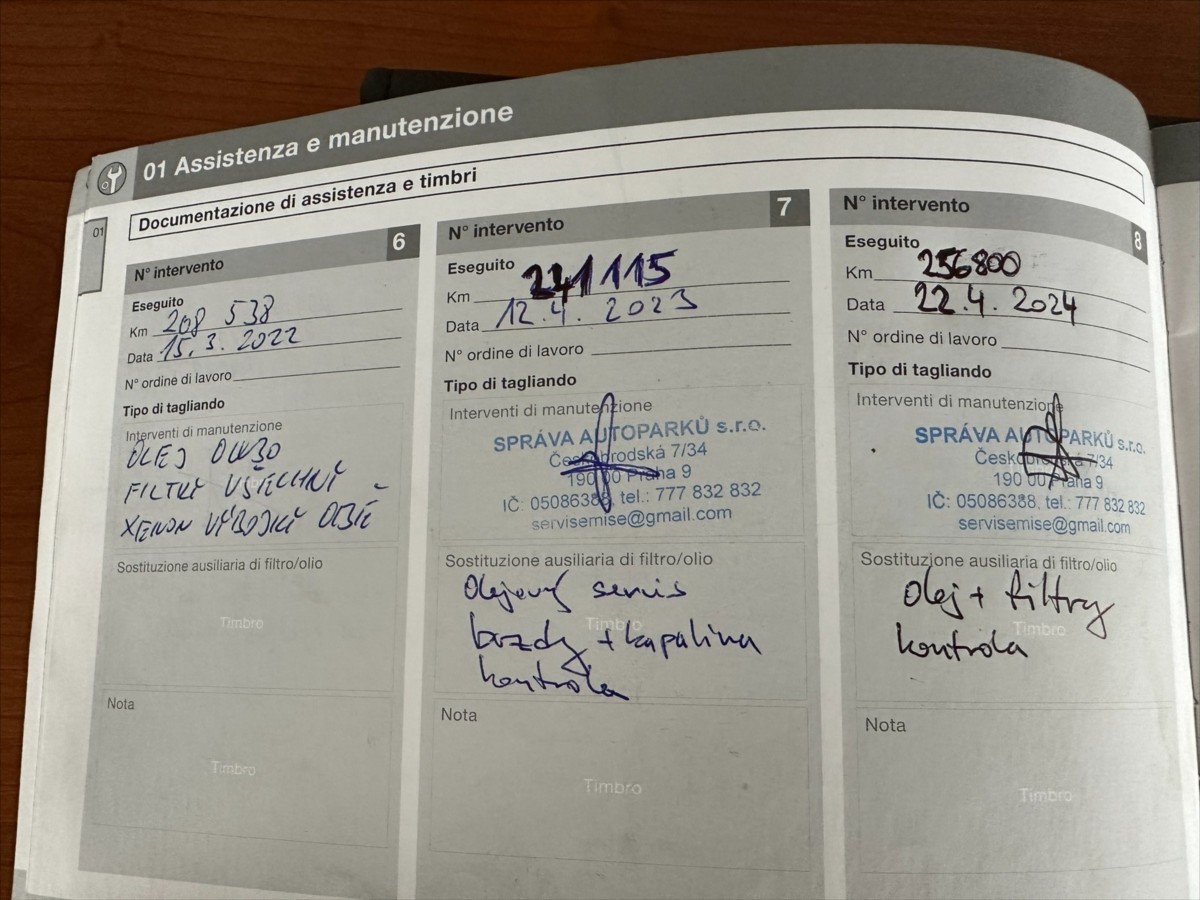 01 Assistenza e manutenzione
Documentazione di assistenza e timbri
01
N° intervento 6
Eseguito
Km 208 538
Data 15.3. 2022
N° ordine di lavoro
Tipo di tagliando
Interventi di manutenzione
OLEJ 0W30
FILTRY VŠECHNY
XENON VÝBOJKY OBĚ
Sostituzione ausiliaria di filtro/olio
Timbro
Nota
Timbro
N° intervento 7
Eseguito
Km 241115
Data 12.4. 2023
N° ordine di lavoro
Tipo di tagliando
Interventi di manutenzione
SPRÁVA AUTOPARKŮ s.r.o.
Českobrodská 7/34
190 00 Praha 9
IČ: 05086388, tel.: 777 832 832
servisemise@gmail.com
Sostituzione ausiliaria di filtro/olio
Olejový servis
Timbro
brzdy + kapalina
kontrola
Nota
Timbro
N° intervento 8
Eseguito
Km 256800
Data 22.4. 2024
N° ordine di lavoro
Tipo di tagliando
Interventi di manutenzione
SPRÁVA AUTOPARKŮ s.r.o.
Českobrodská 7/34
190 00 Praha 9
IČ: 05086388, tel.: 777 832 832
servisemise@gmail.com
Sostituzione ausiliaria di filtro/olio
olej + filtry
Timbro
kontrola
Nota
Timbro